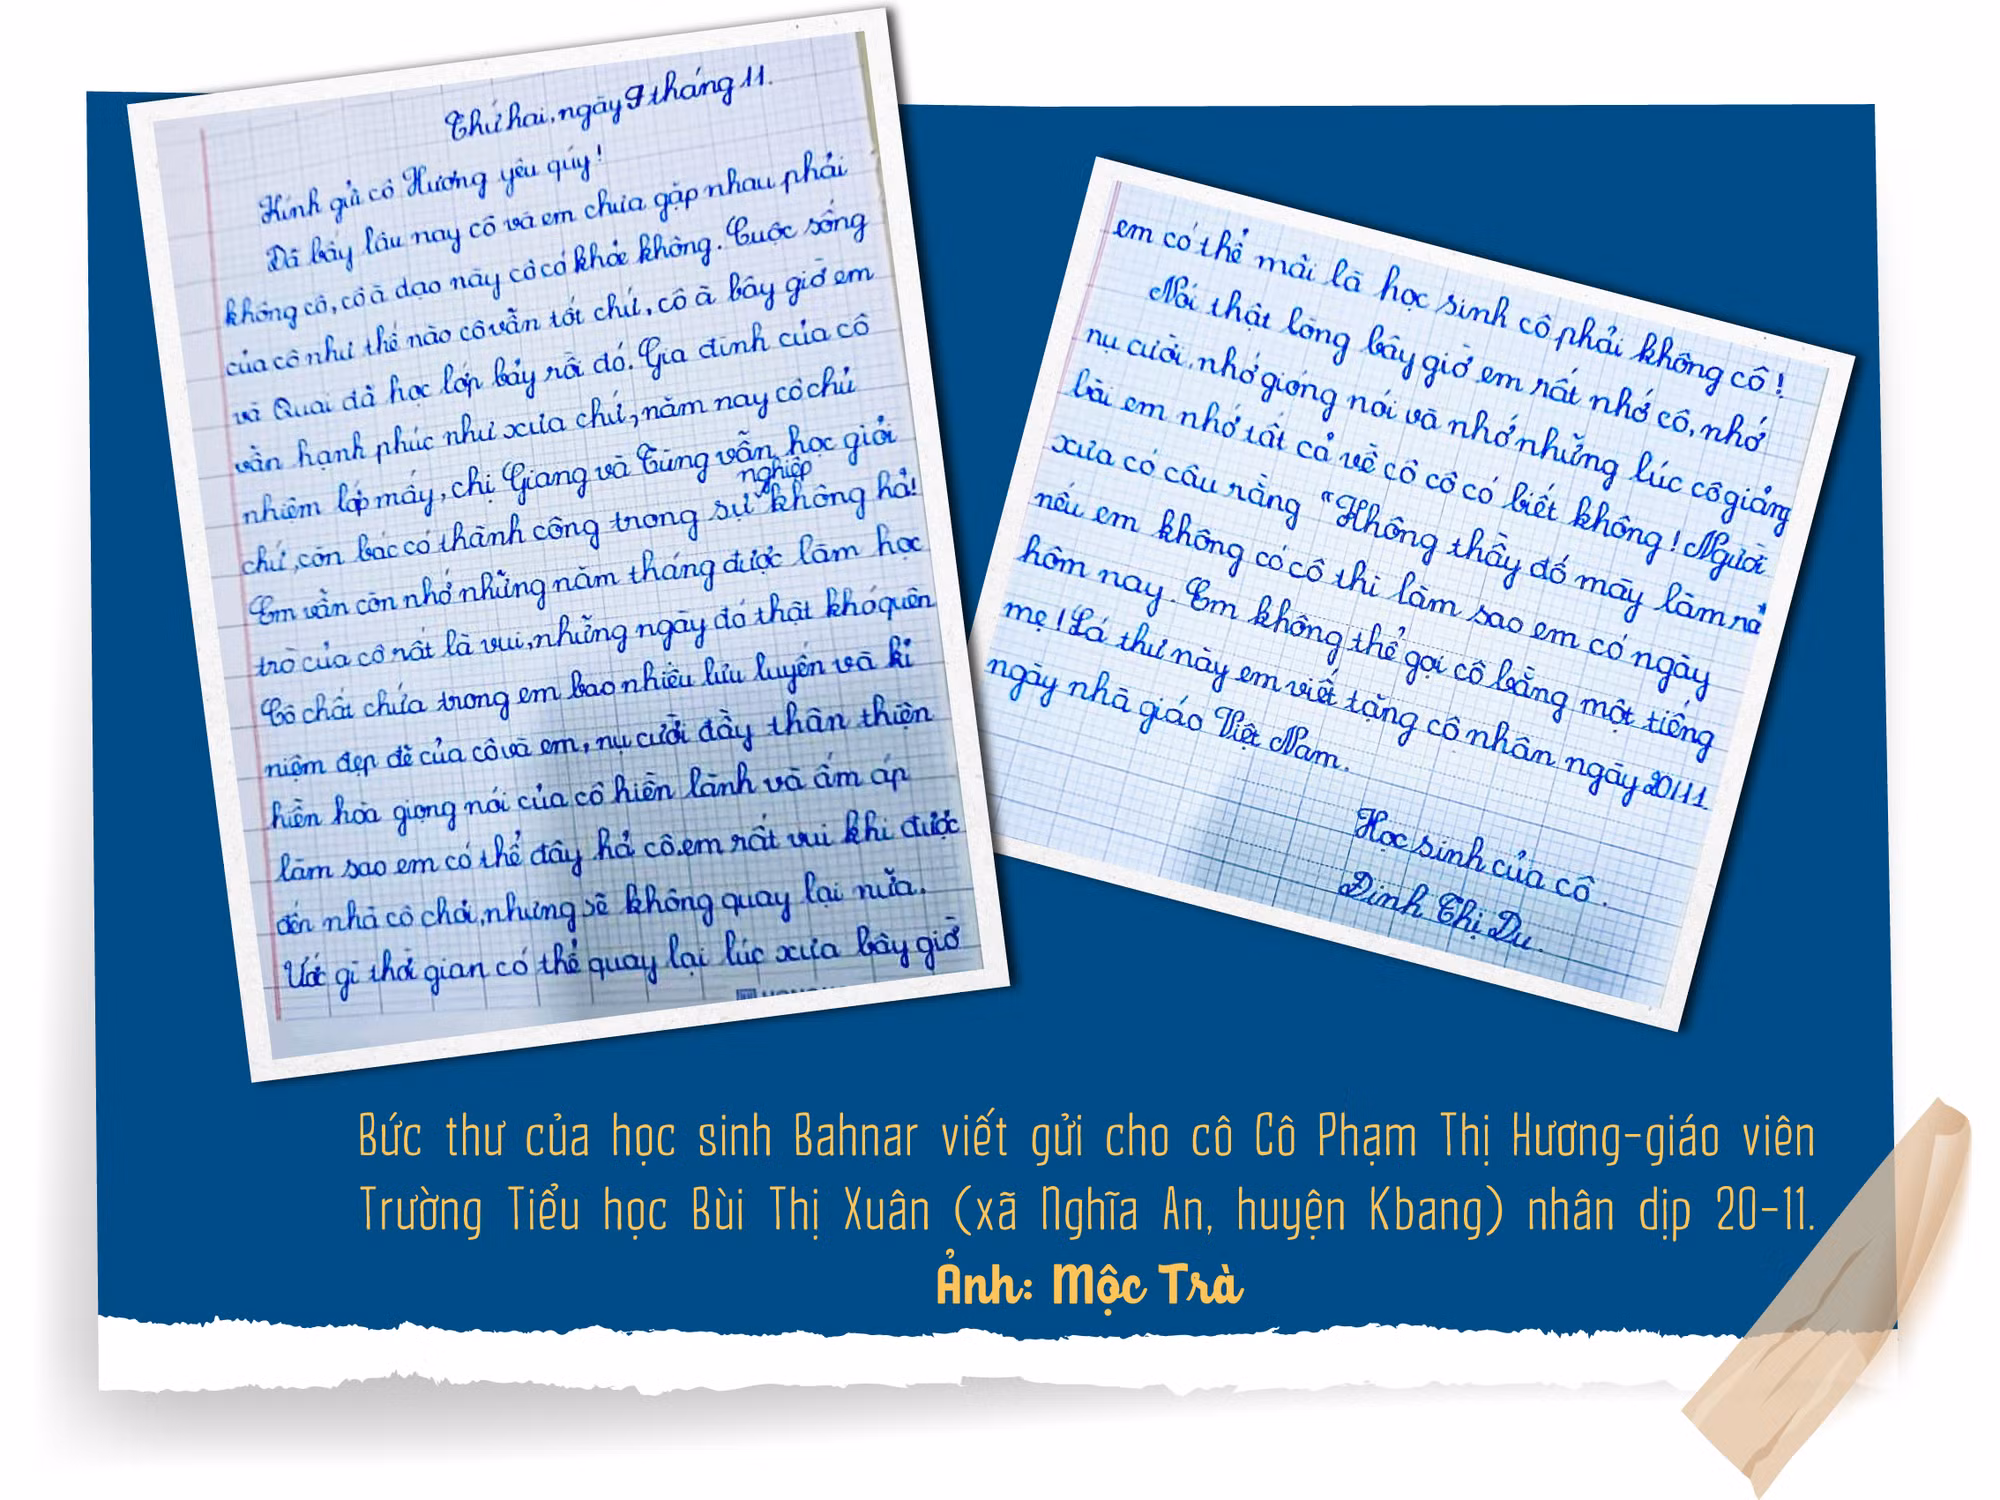 Thứ hai, ngày 9 tháng 11.
Kính gửi cô Hương yêu qúy!
Đã bấy lâu nay cô và em chưa gặp nhau phải
không cô, cô à dạo này cô có khỏe không. Cuộc sống
của cô như thế nào cô vẫn tốt chứ, cô à bây giờ em
và Quai đã học lớp bảy rồi đó. Gia đình của cô
vẫn hạnh phúc như xưa chứ, năm nay cô chủ
nhiệm lớp mấy, chị Giang và Tùng vẫn học giỏi
chứ, còn bác có thành công trong sự nghiệp không hả!
Em vẫn còn nhớ những năm tháng được làm học
trò của cô rất là vui, những ngày đó thật khó quên
Cô chất chứa trong em bao nhiêu lưu luyến và kỉ
niệm đẹp đẽ của cô và em, nụ cười đầy thân thiện
hiền hòa giọng nói của cô hiền lành và ấm áp
làm sao em có thể đây hả cô. em rất vui khi được
đến nhà cô chơi, nhưng sẽ không quay lại nữa.
Ước gì thời gian có thể quay lại lúc xưa bây giờ
em có thể mãi là học sinh cô phải không cô!
Nói thật lòng bây giờ em rất nhớ cô, nhớ
nụ cười, nhớ giọng nói và nhớ những lúc cô giảng
bài em nhớ tất cả về cô cô có biết không! Người
xưa có câu rằng "Không thầy đố mày làm nê
nếu em không có cô thì làm sao em có ngày
hôm nay. Em không thể gọi cô bằng một tiếng
mẹ! Lá thư này em viết tặng cô nhân ngày 20/11
ngày nhà giáo Việt Nam.
Học sinh của cô.
Đinh Thị Du.
Bức thư của học sinh Bahnar viết gửi cho cô Cô Phạm Thị Hương-giáo viên
Trường Tiểu học Bùi Thị Xuân (xã Nghĩa An, huyện Kbang) nhân dịp 20-11.
Ảnh: Mộc Trà